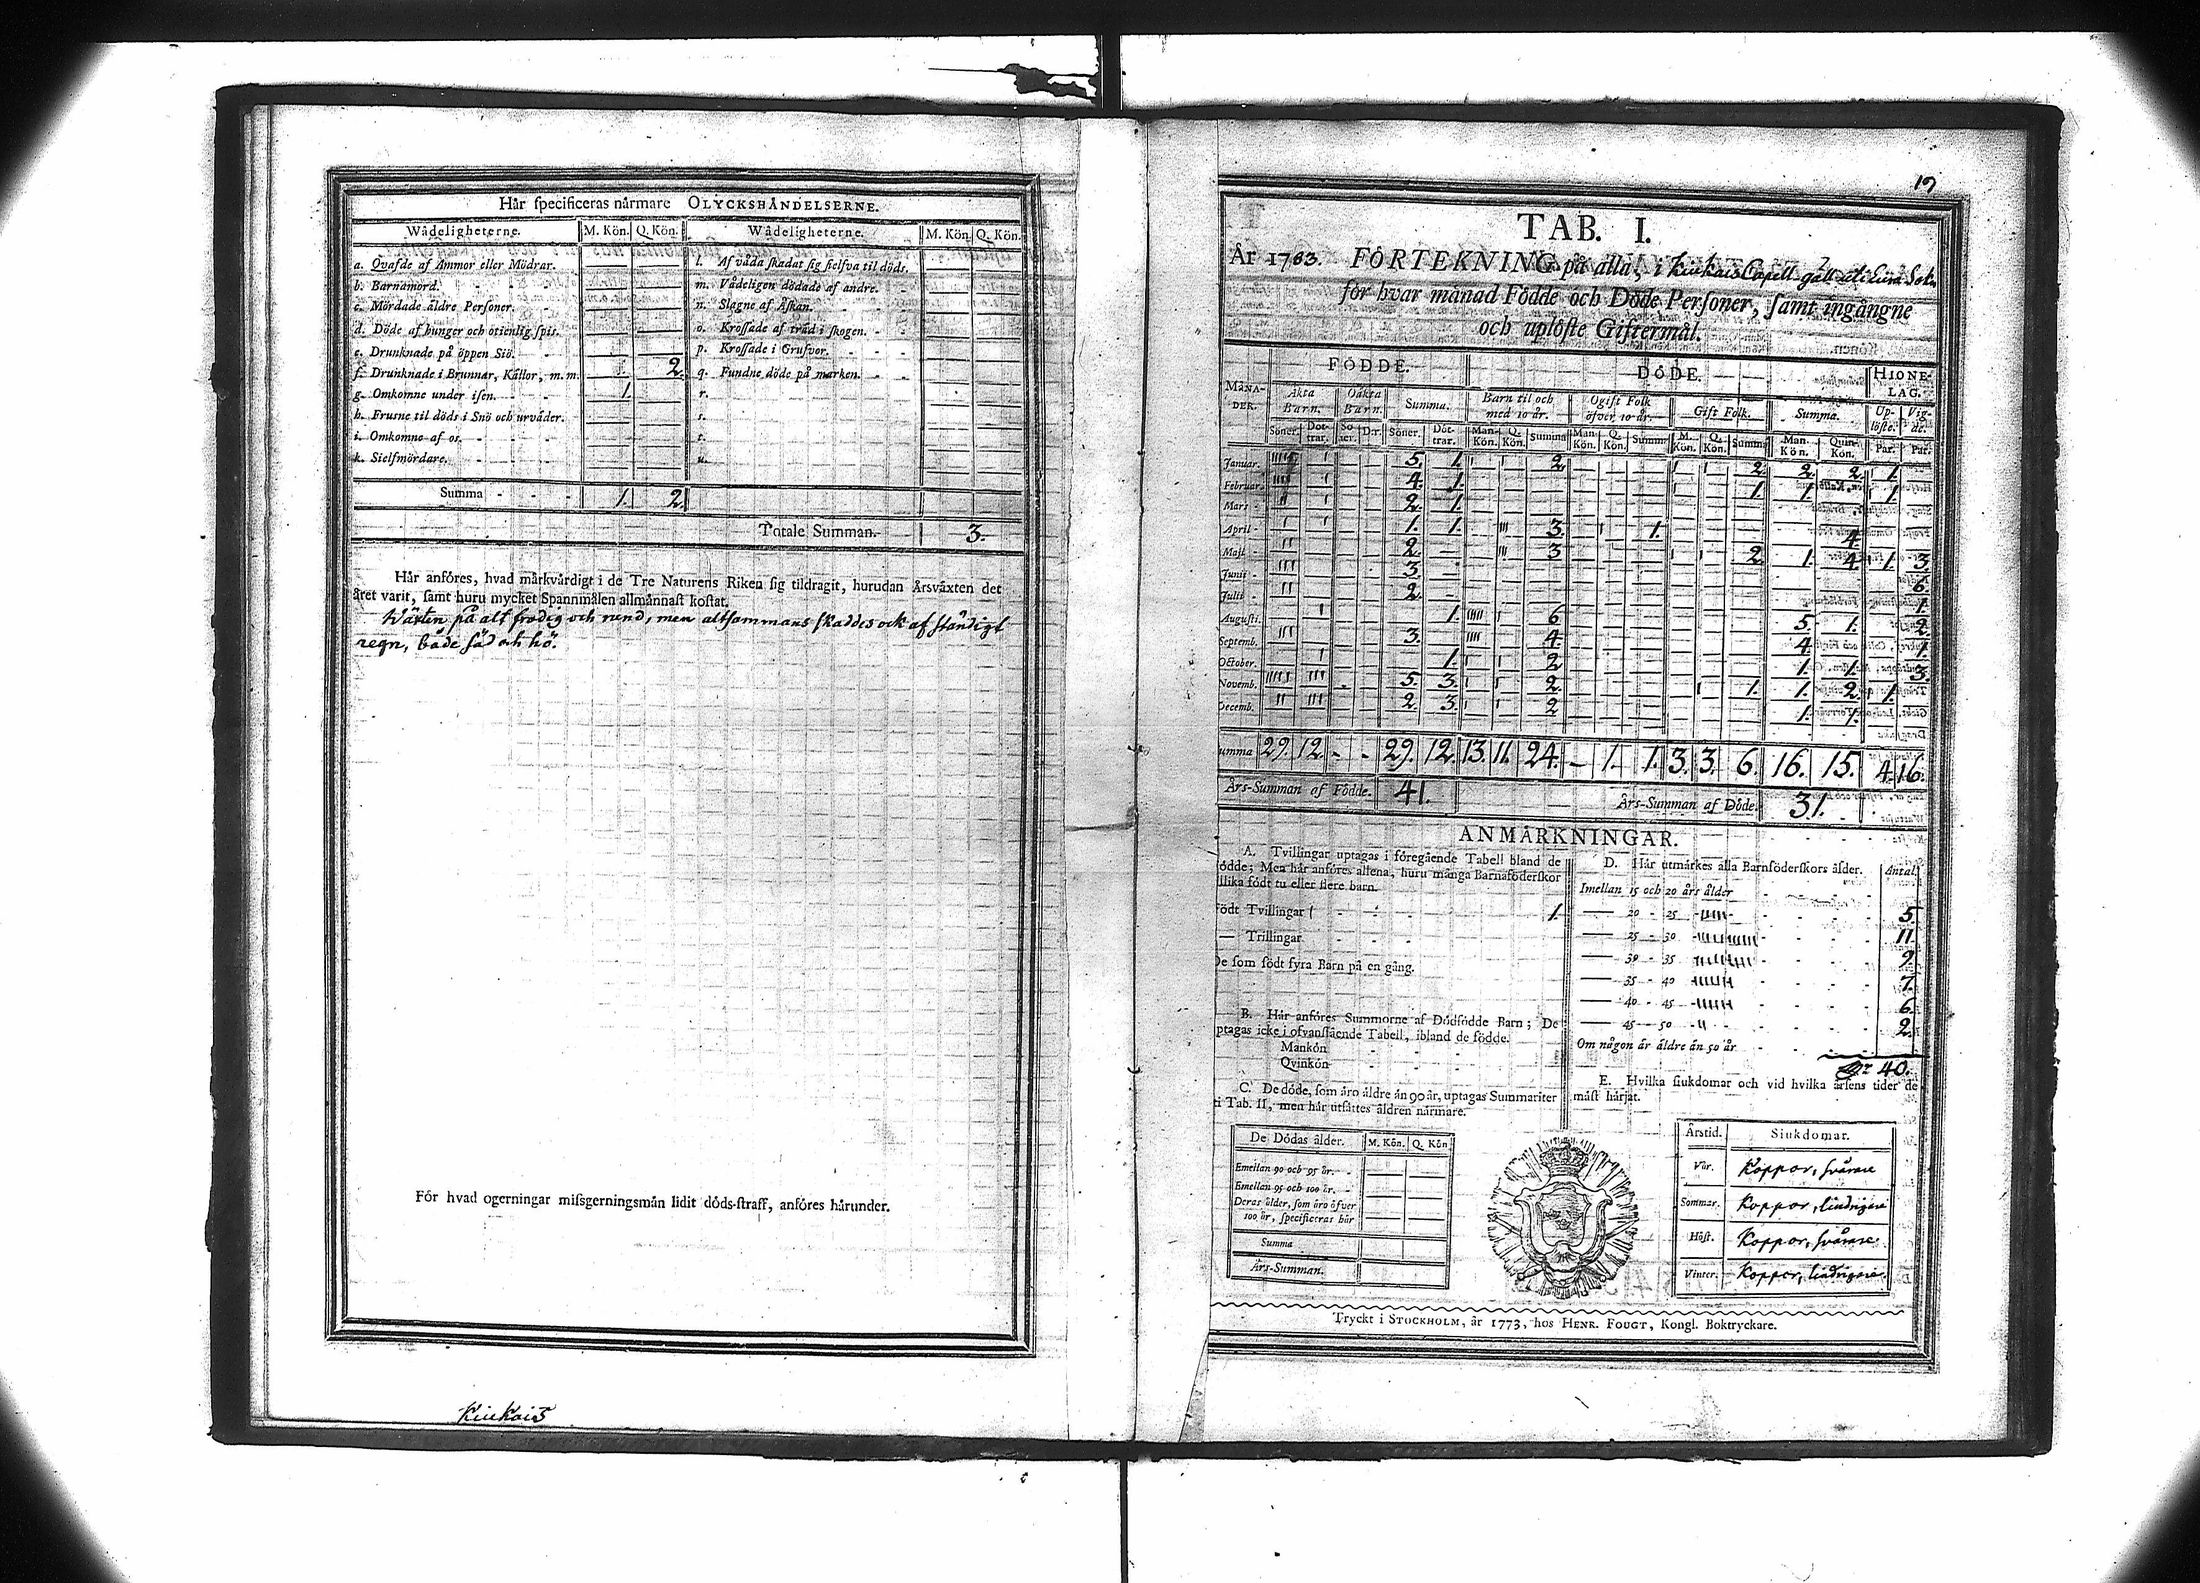 Hår specificeras nårmare OLYCKSHÅNDELSERNE.
Wådeligheterne. M. Kön. Q. Kön. Wådeligheterne. M. Kön. Q. Kön.
a. Qvafde af Ammor eller Mödrar. l. Af våda skadat sig sielfva til döds.
b. Barnamord. m. Vådeligen dödade af andre.
c. Mördade äldre Personer. n. Slagne af Åskan.
d. Döde af hunger och otienlig spis. o. Krossade af träd i skogen.
e. Drunknade på öppen Siö. p. Krossade i Grufvor.
f. Drunknade i Brunnar, Källor, m. m. 2. q. Fundne döde på marken.
g. Omkomne under isen. 1. r.
h. Frusne til döds i Snö och urväder. s.
i. Omkomne af os. t.
k. Sielfmördare. u.
Summa 1. 2.
Totale Summan. 3.
Hår anföres, hvad mårkvårdigt i de Tre Naturens Riken sig tildragit, hurudan Årsväxten det
året varit, samt huru mycket Spannmålen allmånnast kostat.
Wäxten på alt frodig och rund, men altsammans skaddes ock af ständigt
regn, både säd och hö.
För hvad ogerningar missgerningsmån lidit döds-straff, anföres hårunder.
TAB. I.
År 1783. FÖRTEKNING på alla, i Capell
för hvar månad Födde och Döde Personer, samt ingångne
och uplöste Giftermål.
FÖDDE. DÖDE. HIONE-
LAG.
MåNA-
DER. Äkta
Barn. Oäkta
Barn. Summa. Barn til och
med 10 år. Ogift Folk
öfver 10 år. Gift Folk. Summa. Up-
löste. Vig-
de.
Söner. Döt-
trar. So-
ner. D:r Söner. Döt-
trar. Man-
Kön. Q.
Kön. Summa Man-
Kön. Q.
Kön. Summa M.
Kön. Q.
Kön. Summa Man-
Kön. Quin-
Kön. Par. Par.
Januar. 5. 1. 2. 2. 2. 2. 1.
Februar. 4. 1. 1. 1. 1.
Mars 2. 1.
April 1. 1. 3. 1. 4.
Maji 2. 3 2. 1. 4. 1. 3.
Junii 3. 6.
Julii 2. 1.
Augusti. 1. 6 5. 1. 2.
Septemb. 3. 4. 4. 1.
October. 1. 2 1. 1. 3.
Novemb. 5. 3. 2. 1. 1. 2. 1.
Decemb. 2. 3. 2 1. 1.
umma 29. 12. - - 29. 12. 13. 11. 24. - 1. 1. 3. 3. 6. 16. 15. 4. 16.
Års-Summan af Födde. 41. Års-Summan af Döde. 31.
ANMÅRKNINGAR.
A. Tvillingar uptagas i föregående Tabell bland de
ödde; Men hår anföres allena, huru många Barnaföderskor
illika födt tu eller flere barn.
födt Tvillingar 1.
— Trillingar
De som födt fyra Barn på en gång.
B. Hår anföres Summorne af Dödfödde Barn; De
ptagas icke i ofvanstående Tabell, ibland de födde.
Mankön
Qvinkön
C. De döde, som åro åldre ån 90 år, uptagas Summariter
i Tab. II, men hår utsåttes åldren nårmare.
De Dödas ålder. M. Kön. Q. Kön
Emellan 90 och 95 år.
Emellan 95 och 100 år.
Deras ålder, som äro öfver
100 år, specificeras här
Summa
Års-Summan.
D. Hår utmårkes alla Barnföderskors ålder. Antal.
Imellan 15 och 20 års ålder
— 20 - 25 5.
— 25 - 30 11.
— 30 - 35 9.
— 35 - 40 7.
— 40 - 45 6.
— 45 - 50 2.
Om någon är äldre än 50 år
40.
E. Hvilka siukdomar och vid hvilka årsens tider de
måst hårjat.
Årstid. Siukdomar.
Vår. Koppor, svårare
Sommar. Koppor, lindrigare
Höst. Koppor, svårare
Vinter. Koppor, lindrigare
Tryckt i STOCKHOLM, år 1773, hos HENR. FOUGT, Kongl. Boktryckare.